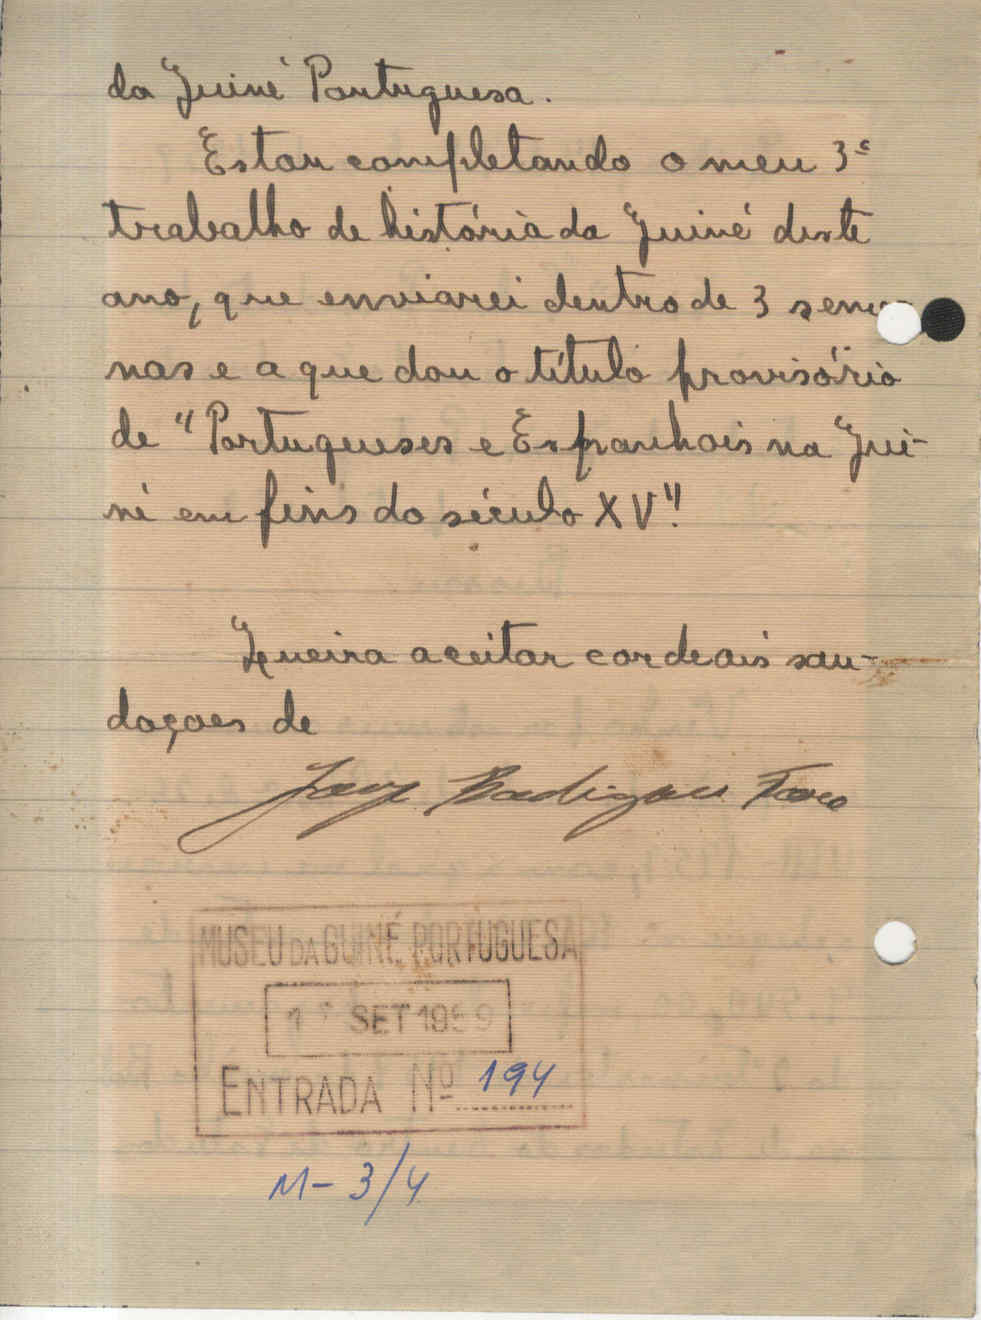 da Guiné Portuguesa.
Estou completando o meu 3º
trabalho de história da Guiné deste
ano, que enviarei dentro de 3 sema-
nas e a que dou o título provisório
de "Portugueses e Espanhois na Gui-
né em fins do século XV".
Queira aceitar cordeais sau-
dações de
Jorge Rodrigues Faro
MUSEU DA GUINÉ PORTUGUESA
SET 1959
ENTRADA Nº 194
M-3/4